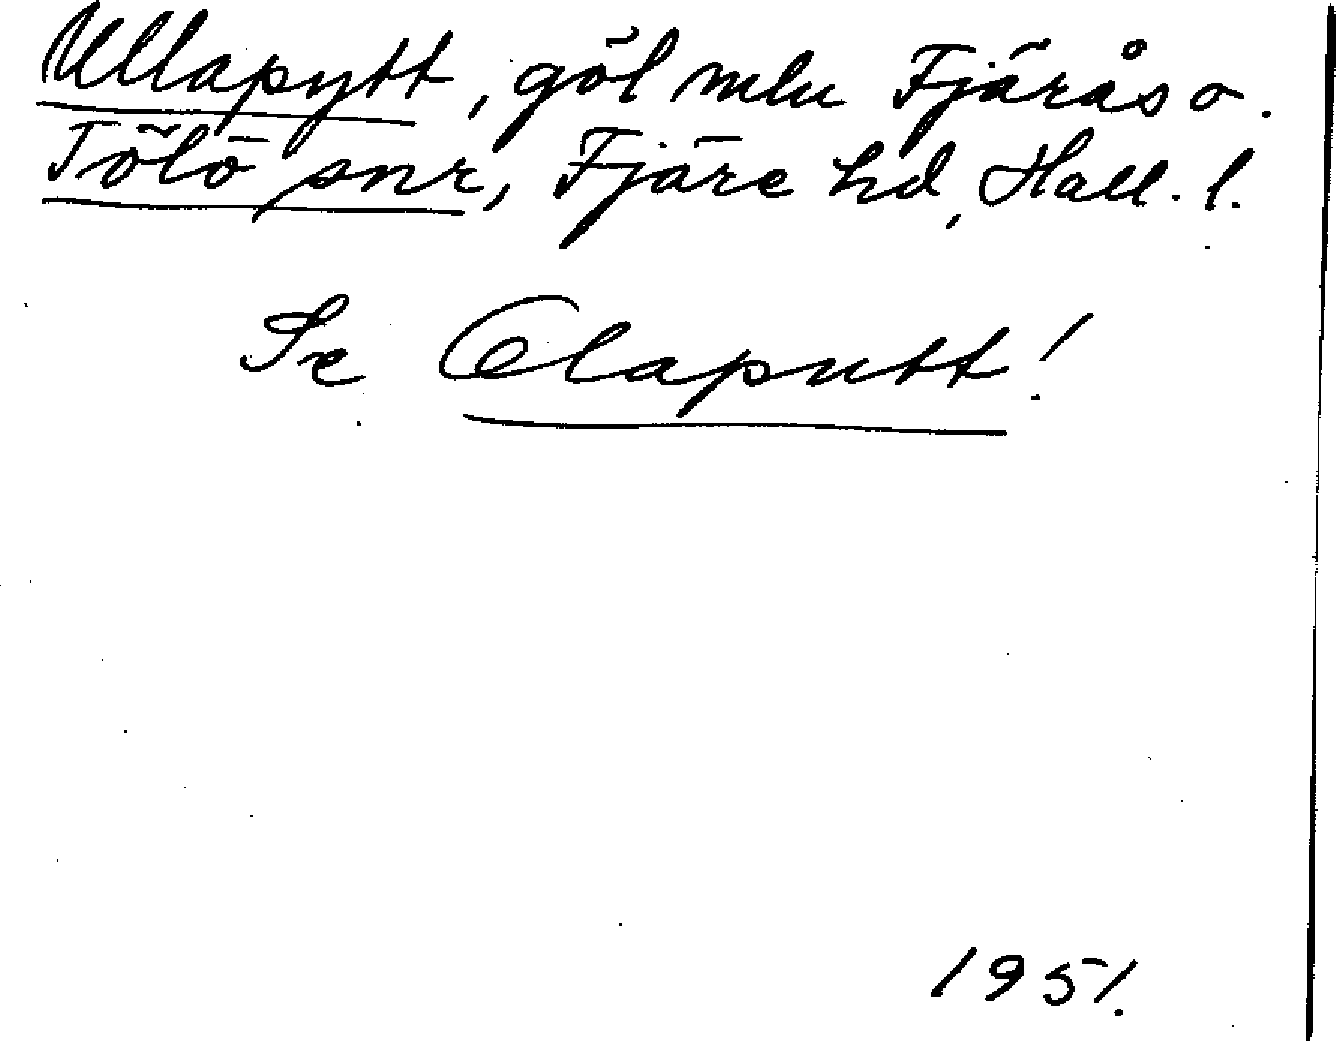 Ullapytt, göl mln Fjärås o.
Tölö snr, Fjäre hd, Hall. l.
Se Olaputt!
1951.